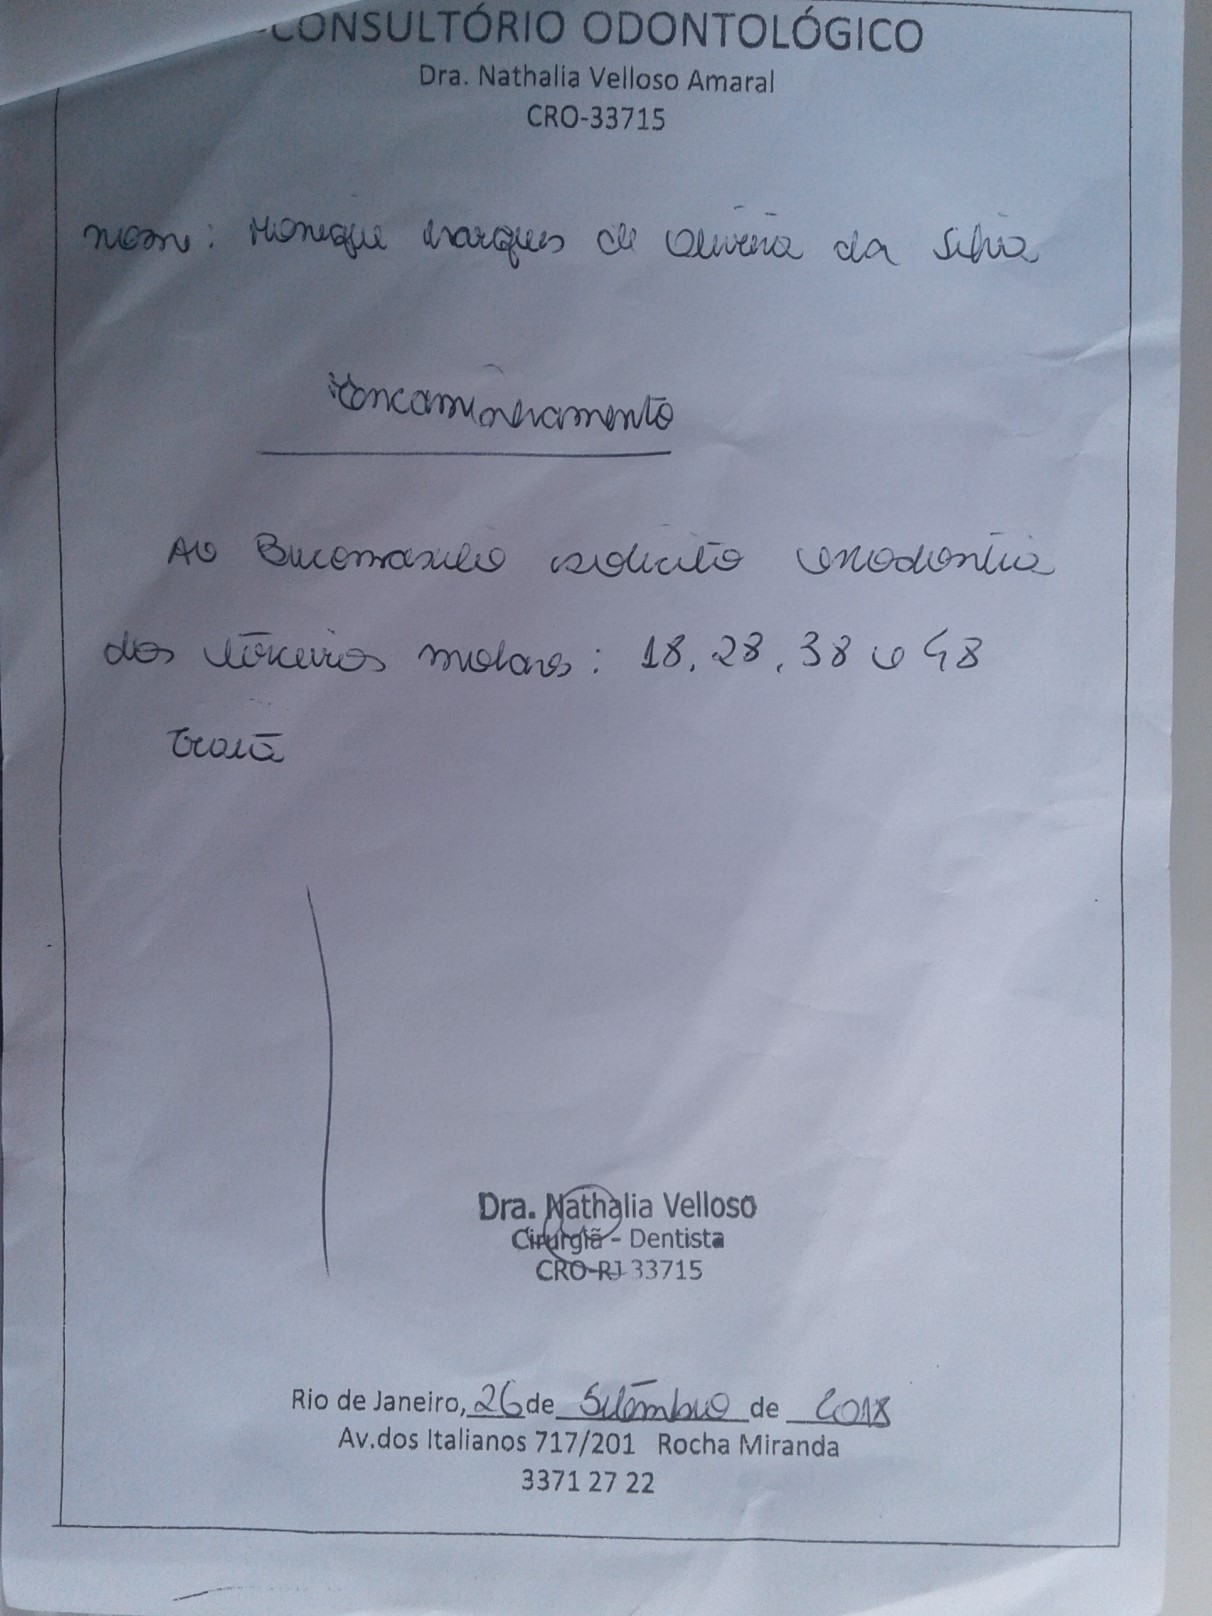 CONSULTÓRIO ODONTOLÓGICO
Dra. Nathalia Velloso Amaral
CRO-33715
Nome: Monique Marques de Oliveira da Silva
Encaminhamento
Ao Bucomaxilo solicito exodontia
dos terceiros molares: 18, 28, 38 e 48
Grata
Dra. Nathalia Velloso
Cirurgiã - Dentista
CRO-RJ 33715
Rio de Janeiro, 26 de Setembro de 2018
Av.dos Italianos 717/201 Rocha Miranda
3371 27 22